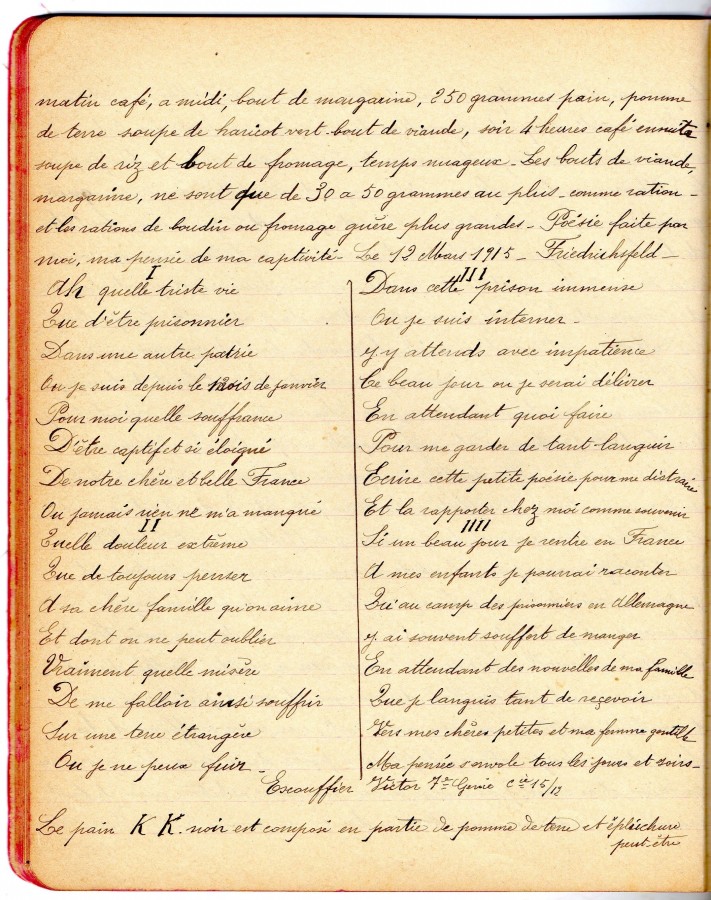 matin café, a midi, bout de margarine, 250 grammes pain, pomme
de terre soupe de haricot vert bout de viande, soir 4 heures café ensuite
soupe de riz et bout de fromage, temps nuageux - Les bouts de viande,
margarine, ne sont que de 30 a 50 grammes au plus - comme ration -
et les rations de boudin ou fromage guère plus grandes - Poésie faite par
moi, ma pensée de ma captivité - Le 12 Mars 1915 - Friedrichsfeld -
I
Ah quelle triste vie
Que d'être prisonnier
Dans une autre patrie
Ou je suis depuis le mois de janvier
Pour moi quelle souffrance
D'être captif et si éloigné
De notre chère et belle France
Ou jamais rien ne m'a manqué
II
Quelle douleur extrême
Que de toujours penser
A sa chère famille qu'on aime
Et dont on ne peut oublier
Vraiment quelle misère
De me falloir ainsi souffrir
Sur une terre étrangère
Ou je ne peux fuir -
III
Dans cette prison immense
Ou je suis interner -
J'y attends avec impatience
Ce beau jour ou je serai délivrer
En attendant quoi faire
Pour me garder de tant languir
Ecrire cette petite poésie pour me distraire
Et la rapporter chez moi comme souvenir
IIII
Si un beau jour je rentre en France
A mes enfants je pourrai raconter
Qu'au camp des prisonniers en Allemagne
J'y ai souvent souffert de manger
En attendant des nouvelles de ma famille
Que je languis tant de reçevoir
Vers mes chères petites et ma femme gentille
Ma pensée s'envole tous les jours et soirs -
Escouffier Victor 7e Génie Cie 15/12
Le pain K K. noir est composé en partie de pomme de terre et épluchure
peut-être